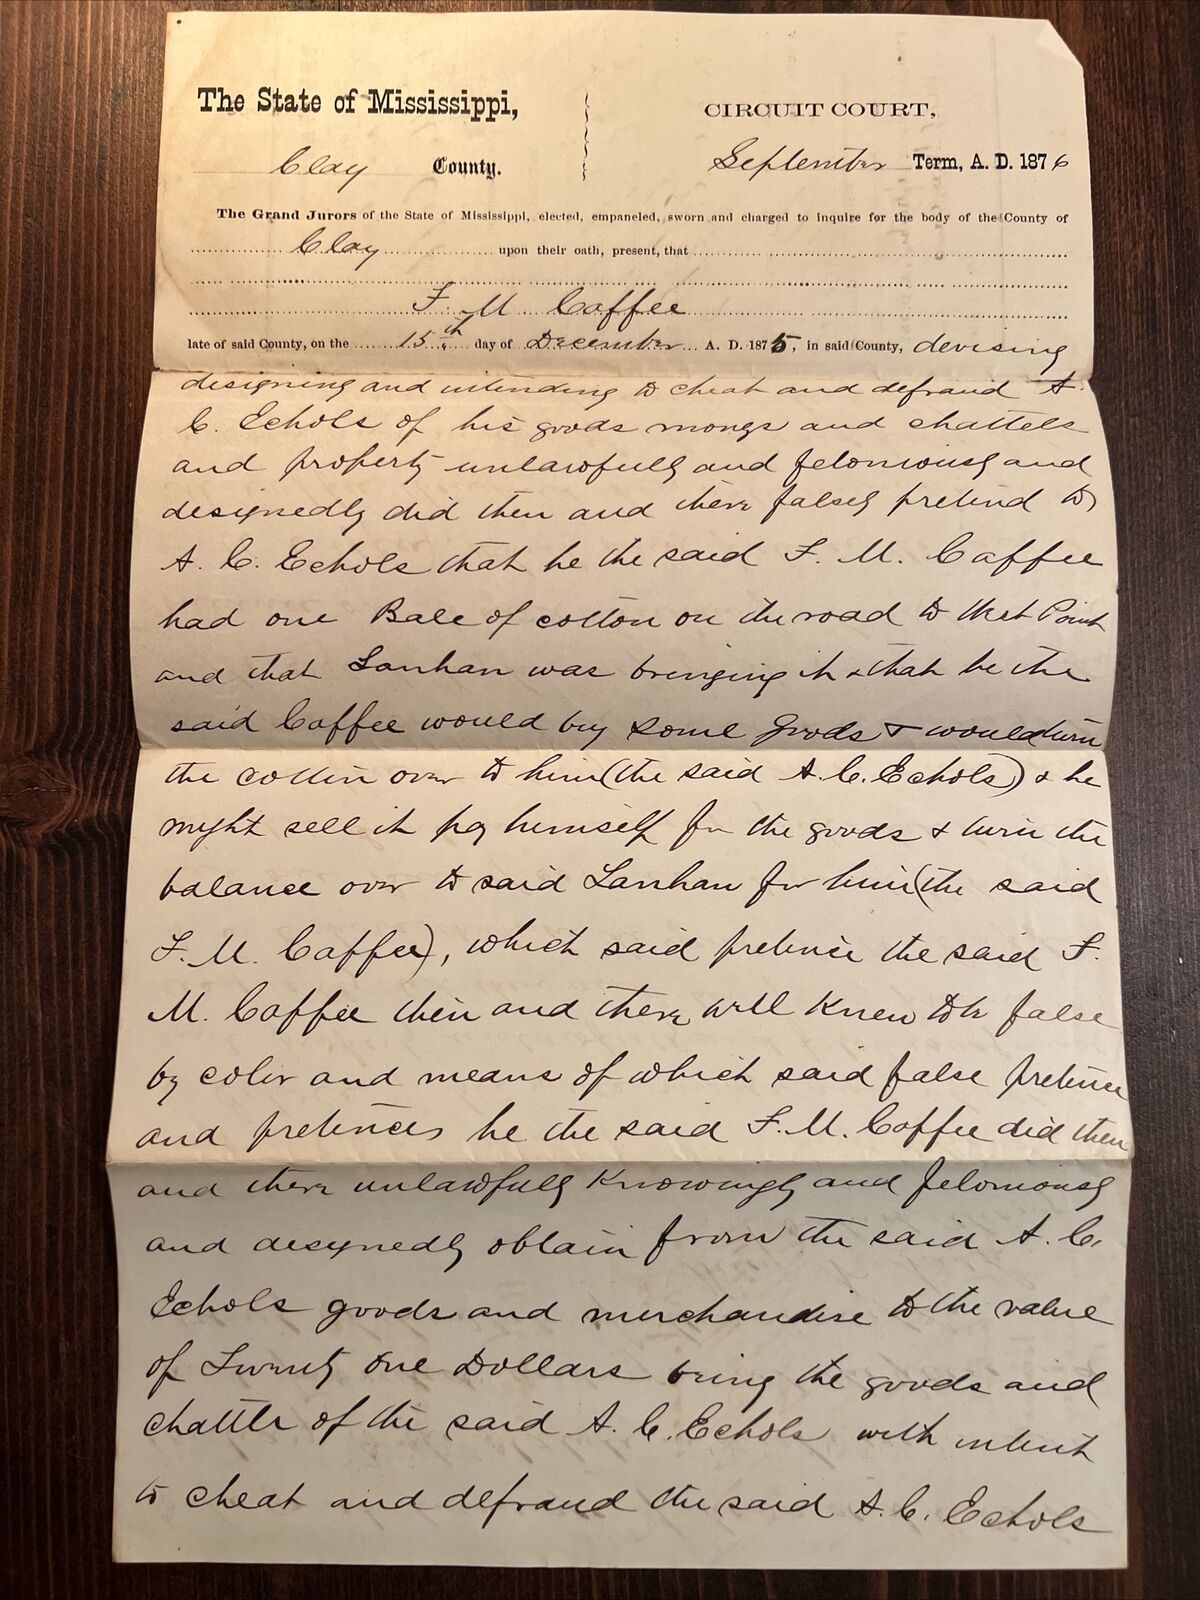 The State of Mississippi,
CIRCUIT COURT,
Clay County.
September Term, A. D. 1876
The Grand Jurors of the State of Mississippi, elected, empaneled, sworn and charged to inquire for the body of the County of
Clay upon their oath, present, that
F. M Caffee
late of said County, on the 15th day of December A. D. 1875, in said County, devising
designing and intending to cheat and defraud A.
C. Echols of his goods moneys and chattels
and property unlawfully and feloniously and
designedly did then and there falsely pretend to
A. C. Echols that he the said F. M. Caffee
had one Bale of cotton on the road to West Point
and that Lanhan was bringing it & that he the
said Caffee would buy some goods & would turn
the cotton over to him (the said A. C. Echols) & he
might sell it pay himself for the goods & turn the
balance over to said Lanhan for him (the said
F. M. Caffee), which said pretence the said F.
M. Caffee then and there well knew to be false
by color and means of which said false pretence
and pretences he the said F. M. Caffee did then
and there unlawfully knowingly and feloniously
and designedly obtain from the said A. C.
Echols goods and merchandise to the value
of Twenty one Dollars being the goods and
chattle of the said A. C. Echols with intent
to cheat and defraud the said A. C. Echols